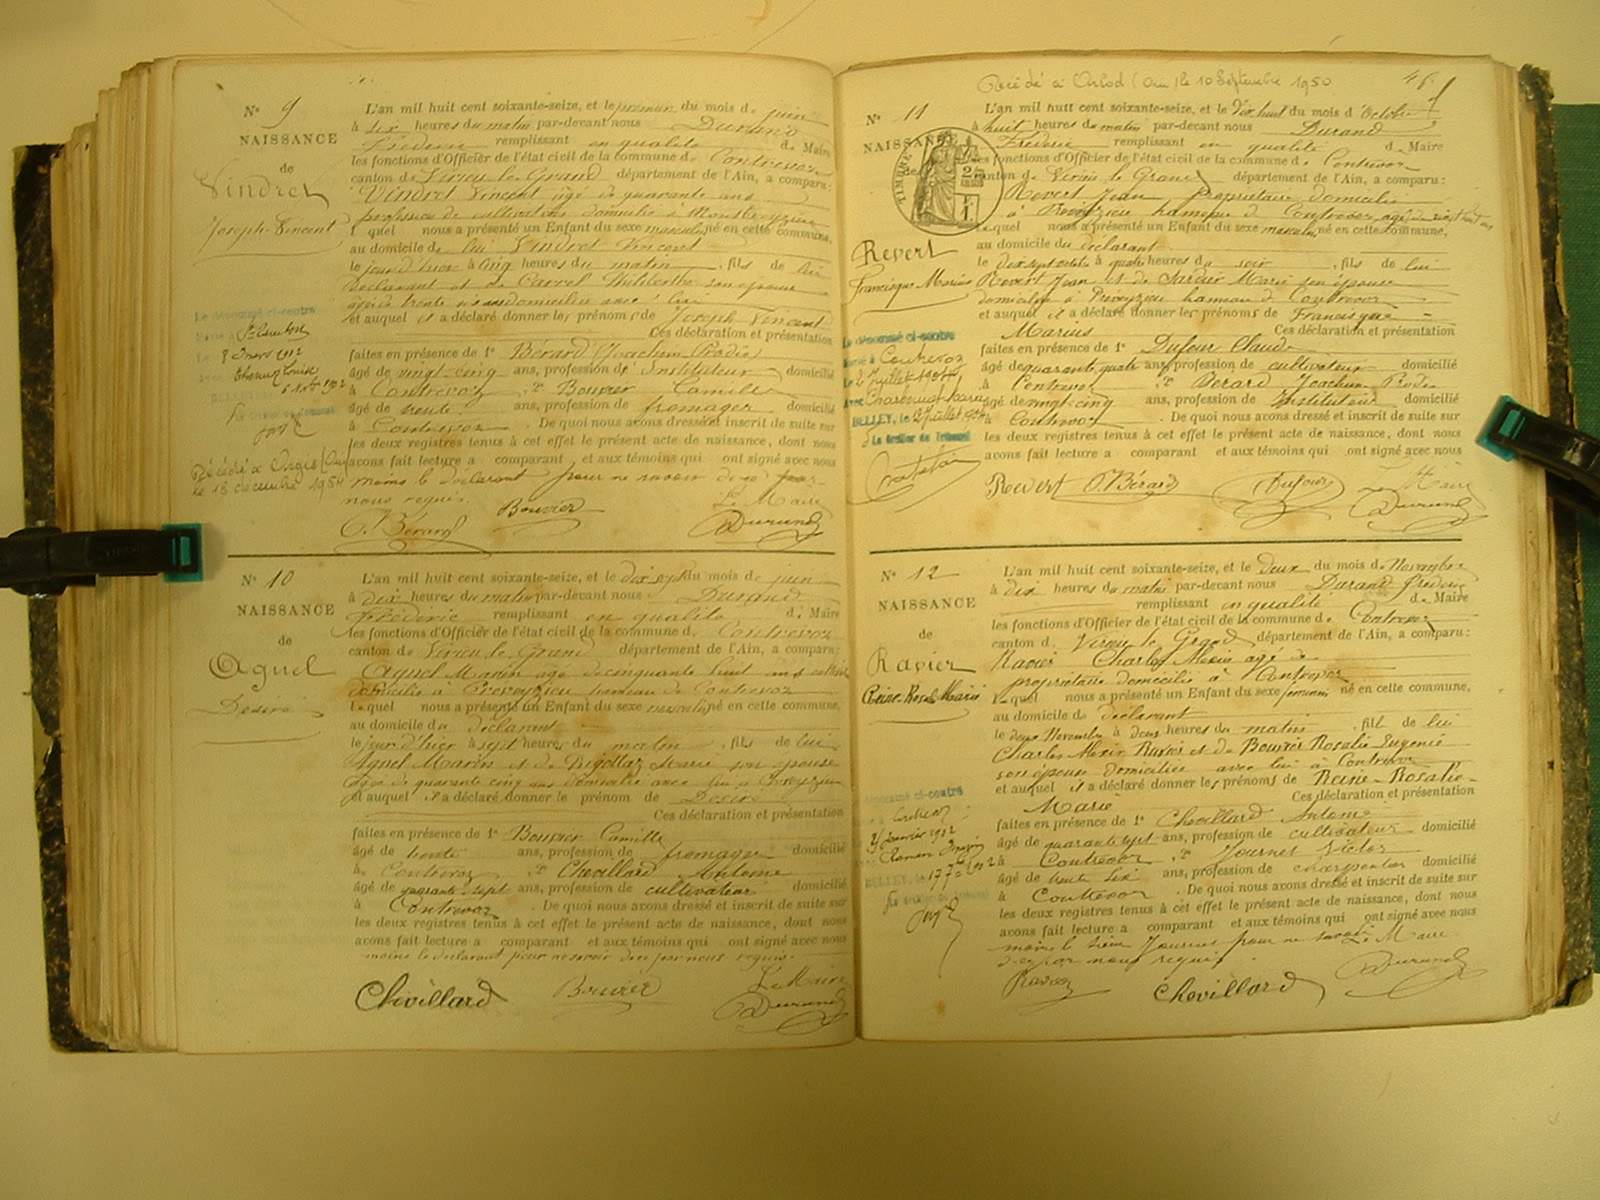 N° 9
NAISSANCE
de
Vindret
Joseph Vincent
L'an mil huit cent soixante-seize, et le premier du mois de juin
à six heures du matin par-devant nous Durand
Fréderic remplissant en qualité de Maire
les fonctions d'Officier de l'état civil de la commune de Contrevoz
canton de Virieu le Grand département de l'Ain, a comparu:
Vindret Vincent âgé de quarante ans
profession de cultivateur domicilié à
lequel nous a présenté un Enfant du sexe masculin né en cette commune,
au domicile de lui Vindret Vincent
le jour d'hier à cinq heures du matin, fils de lui
déclarant et de son épouse
âgée de trente ans domiciliée avec lui
et auquel il a déclaré donner les prénoms de Joseph Vincent
Ces déclaration et présentation
faites en présence de 1° Bérard Joachim Prodis
âgé de vingt cinq ans, profession d'Instituteur domicilié
à Contrevoz, 2° Bouvier Camille
âgé de trente ans, profession de fromager domicilié
à Contrevoz. De quoi nous avons dressé et inscrit de suite sur
les deux registres tenus à cet effet le présent acte de naissance, dont nous
avons fait lecture a comparant et aux témoins qui ont signé avec nous
moins le déclarant pour ne savoir de ce par
nous requis.
Bouvier Le Maire
J. Bérard Durand
Le dénommé ci-contre
8 mars 1912
Décédé à
le 18 décembre 1954
N° 10
NAISSANCE
de
Aguel
Désiré
L'an mil huit cent soixante-seize, et le dix sept du mois de juin
à dix heures du matin par-devant nous Durand
Fréderic remplissant en qualité de Maire
les fonctions d'Officier de l'état civil de la commune de Contrevoz
canton de Virieu le Grand département de l'Ain, a comparu:
Aguel Marin âgé de cinquante huit ans
domicilié à Preveyzieu hameau de Contrevoz
lequel nous a présenté un Enfant du sexe masculin né en cette commune,
au domicile du déclarant
le jour d'hier à sept heures du matin, fils de lui
Aguel Marin et de Marie son épouse
âgée de quarante cinq ans domiciliée avec lui à Preveyzieu
et auquel il a déclaré donner le prénom de Désiré
Ces déclaration et présentation
faites en présence de 1° Bouvier Camille
âgé de trente ans, profession de fromager domicilié
à Contrevoz, 2° Chevillard Antoine
âgé de quarante-sept ans, profession de cultivateur domicilié
à Contrevoz. De quoi nous avons dressé et inscrit de suite sur
les deux registres tenus à cet effet le présent acte de naissance, dont nous
avons fait lecture a comparant et aux témoins qui ont signé avec nous
moins le déclarant pour ne savoir de ce par nous requis.
Chevillard Bouvier Le Maire
Durand
Décédé à Orlod (Ain) le 10 Septembre 1950
N° 11
NAISSANCE
TIMBRE
Revert
Francisque Marius
L'an mil huit cent soixante-seize, et le Dix huit du mois d'Octobre
à huit heures du matin par-devant nous Durand
Fréderic remplissant en qualité de Maire
les fonctions d'Officier de l'état civil de la commune de Contrevoz
canton de Virieu le Grand département de l'Ain, a comparu:
Revert Jean propriétaire domicilié
à Preveyzieu hameau de Contrevoz
lequel nous a présenté un Enfant du sexe masculin né en cette commune,
au domicile du déclarant
le dix sept octobre à quatre heures du soir, fils de lui
Revert Jean et de Marie son épouse
domiciliée à Preveyzieu hameau de Contrevoz
et auquel il a déclaré donner les prénoms de Francisque
Marius Ces déclaration et présentation
faites en présence de 1° Dufour Claude
âgé de quarante quatre ans, profession de cultivateur domicilié
à Contrevoz, 2° Bérard Joachim Prodis
âgé de vingt-cinq ans, profession de Instituteur domicilié
à Contrevoz. De quoi nous avons dressé et inscrit de suite sur
les deux registres tenus à cet effet le présent acte de naissance, dont nous
avons fait lecture a comparant et aux témoins qui ont signé avec nous
Revert J. Bérard Dufour Le Maire
Durand
Le dénommé ci-contre
Marié à Contrevoz
BELLEY, le
Le Greffier du Tribunal
N° 12
NAISSANCE
de
Ravier
Reine-Rosalie Marie
L'an mil huit cent soixante-seize, et le deux du mois de Novembre
à dix heures du matin par-devant nous Durand Fréderic
remplissant en qualité de Maire
les fonctions d'Officier de l'état civil de la commune de Contrevoz
canton de Virieu le Grand département de l'Ain, a comparu:
Ravier Charles Alexis âgé de
propriétaire domicilié à Contrevoz
lequel nous a présenté un Enfant du sexe féminin né en cette commune,
au domicile du déclarant
le deux Novembre à deux heures du matin, fille de lui
Charles Alexis Ravier et de Bouvier Rosalie Eugénie
son épouse domiciliée avec lui à Contrevoz
et auquel il a déclaré donner les prénoms de Reine-Rosalie-
Marie Ces déclaration et présentation
faites en présence de 1° Chevillard Antoine
âgé de quarante sept ans, profession de cultivateur domicilié
à Contrevoz, 2° Journet Victor
âgé de trente six ans, profession de charpentier domicilié
à Contrevoz. De quoi nous avons dressé et inscrit de suite sur
les deux registres tenus à cet effet le présent acte de naissance, dont nous
avons fait lecture a comparant et aux témoins qui ont signé avec nous
moins le sieur Journet pour ne savoir Le Maire
de ce par nous requis.
Ravier Chevillard Durand